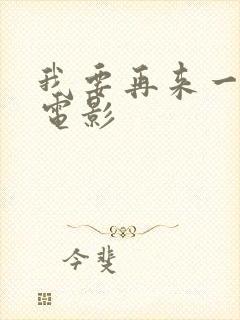 我要再来一
電影
今斐